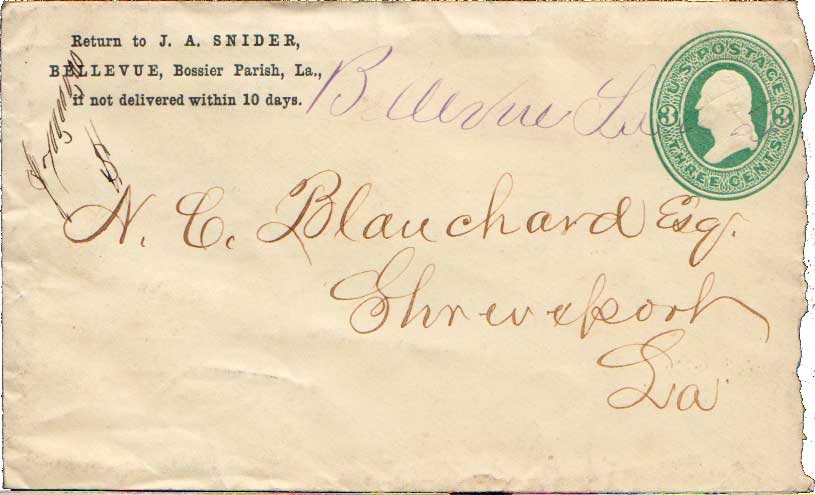 Return to J. A. SNIDER,
BELLEVUE, Bossier Parish, La.,
if not delivered within 10 days.
Bellevue
U.S. POSTAGE
3 3
THREE CENTS
N. C. Blanchard Esq.
Shreveport
La